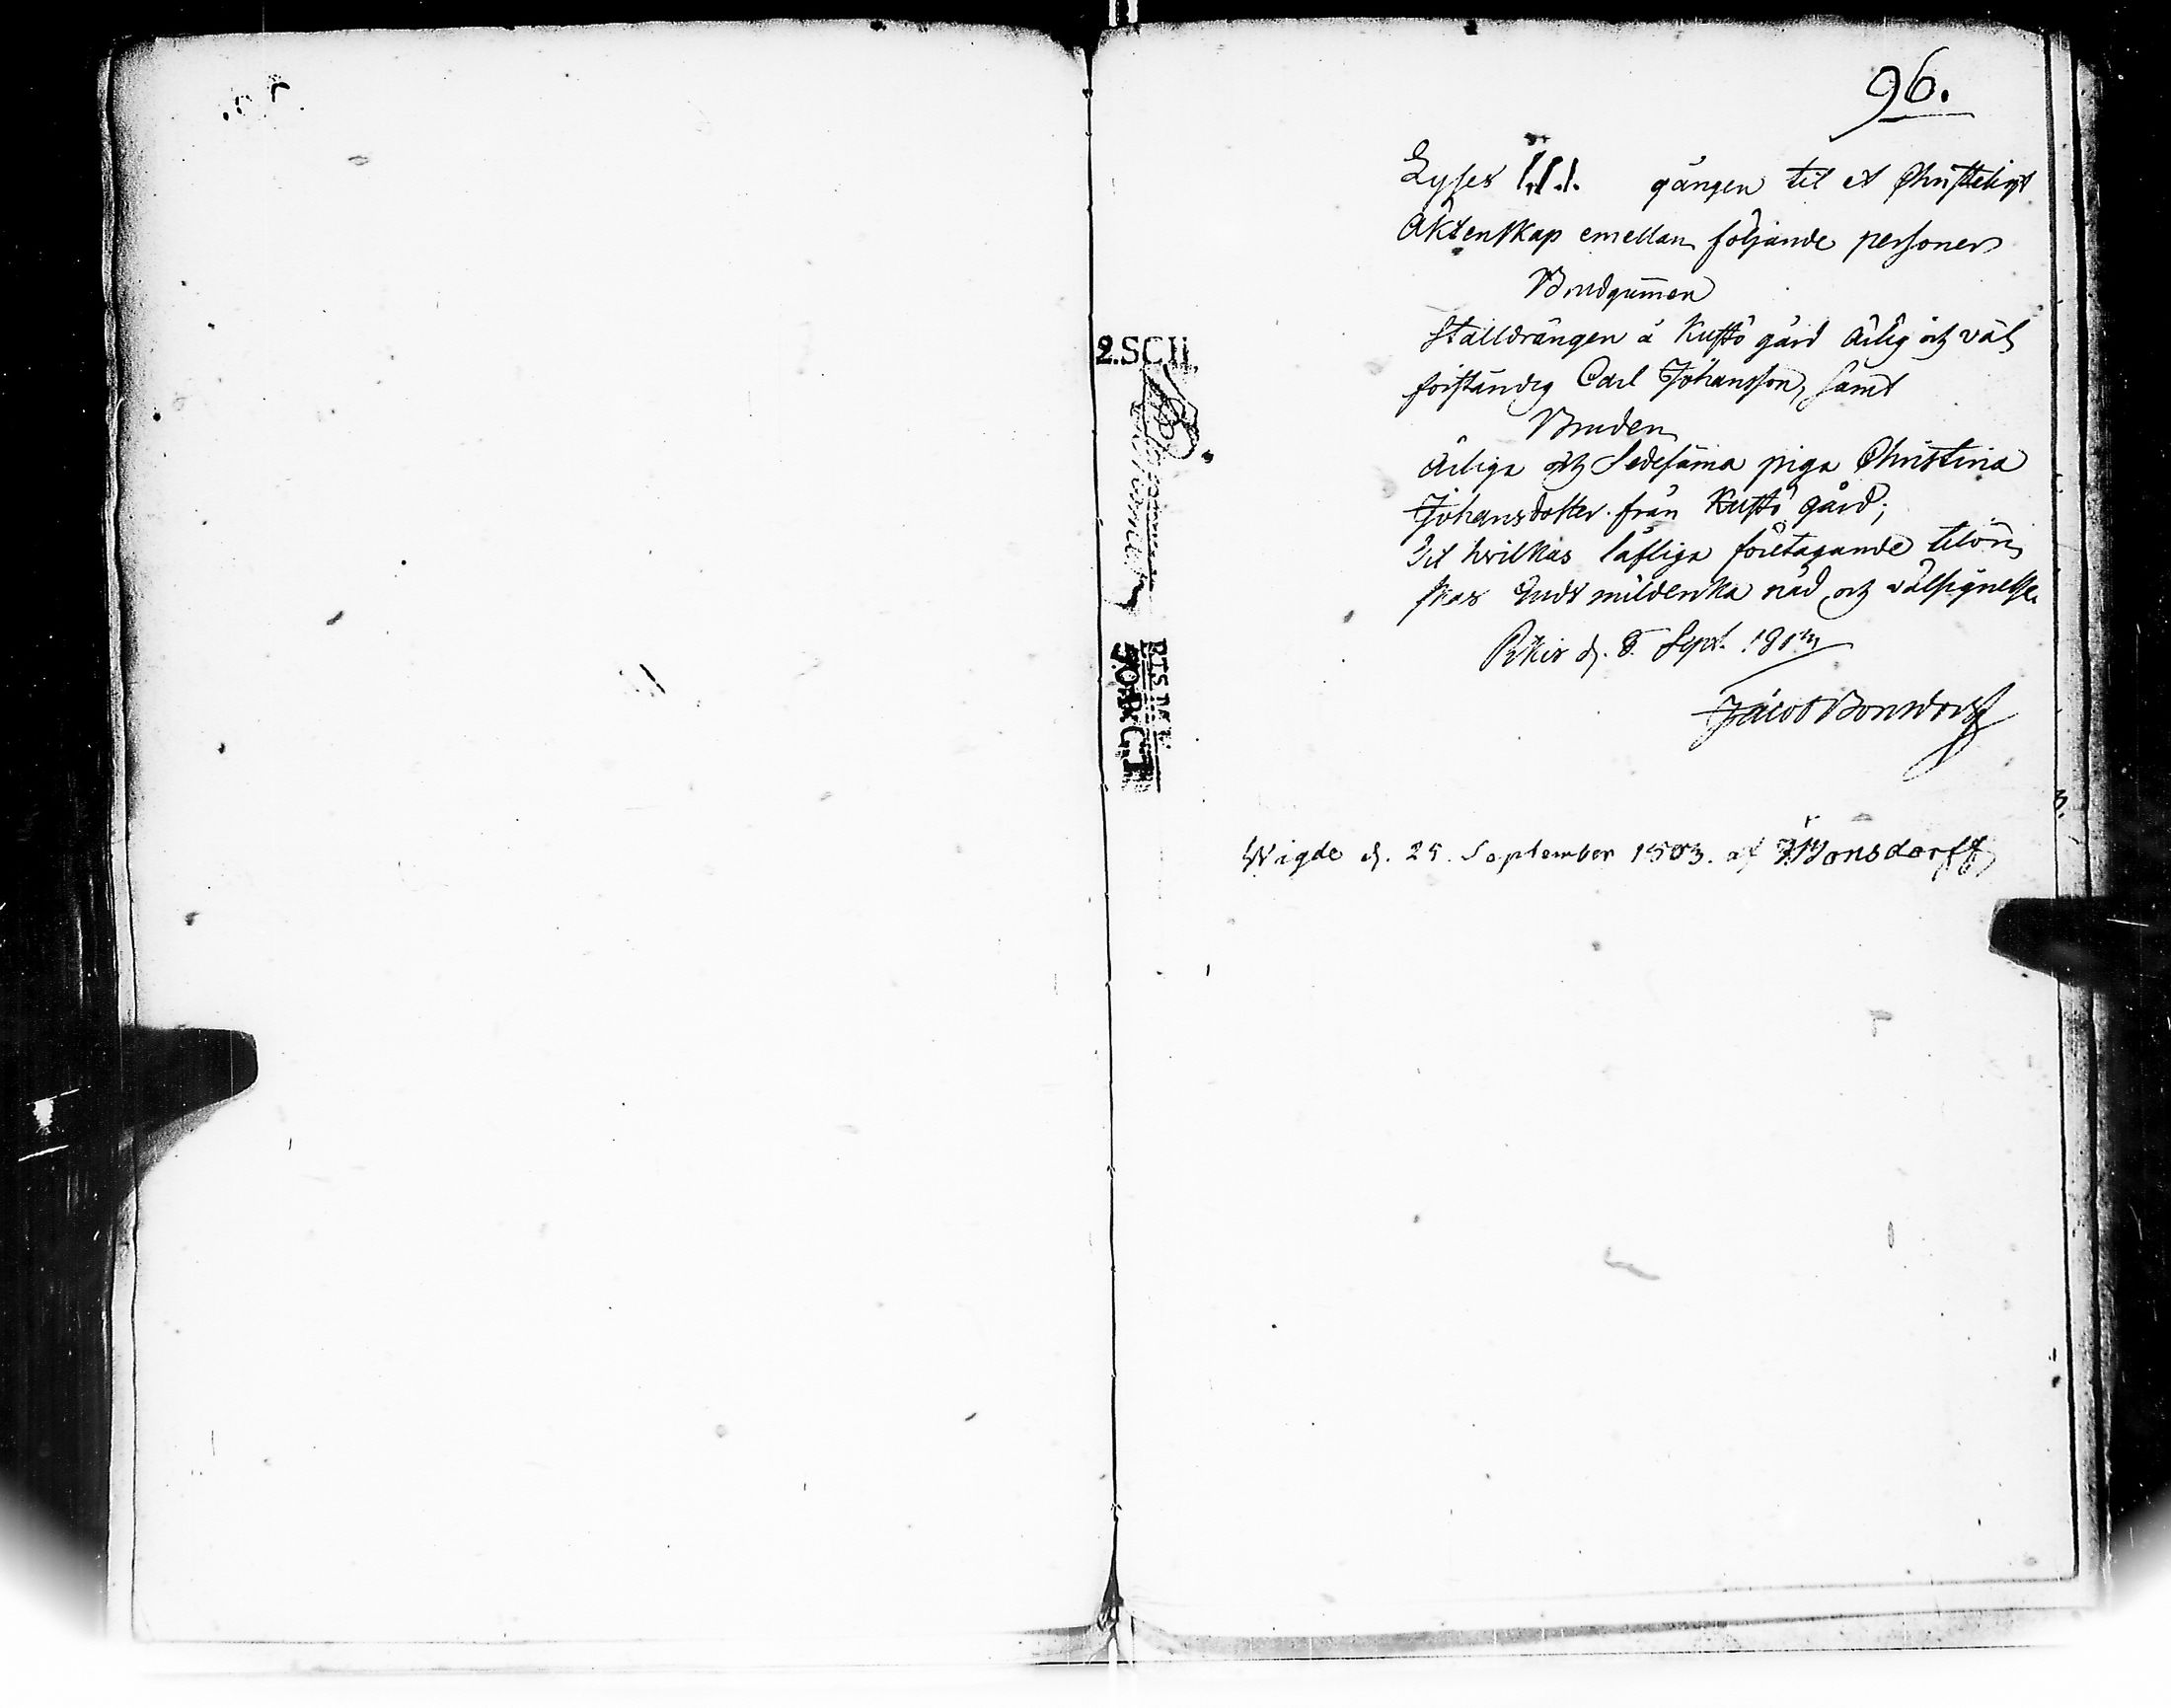 96.
Lyses 1.1.1. gången til et Christeligt
Äktenskap emellan följande personer
Brudgummen
Stalldrängen å Kustö gård ärlig och väl
förståndig Carl Johansson, samt
Bruden
ärliga och Sedesama piga Christina
Johansdotter från Kustö gård;
Til hvilkas låfliga företagande tilön
skas Guds mildrika nåd och välsignelse.
Pikis d. 8 Sept. 1803
Jacob Bonsdorff
Wigde d. 25. September 1803. af J Bonsdorff
2.SCH.